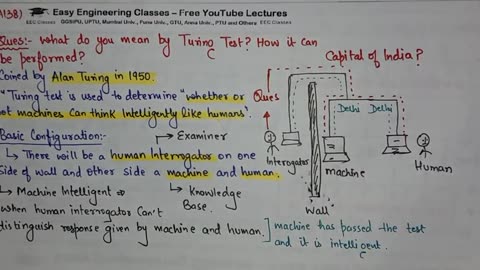 A13B)
Easy Engineering Classes – Free YouTube Lectures
EEC Classes
GGSIPU, UPTU, Mumbai Univ., Pune Univ., GTU, Anna Univ., PTU and Others EEC Classes
Ques:- What do you mean by Turing Test? How it can
C
be performed?
Coined by Alan Turing in 1950.
"Turing test is used to determine "whether or
not machines can think Intelligently like humans".
Basic Configuration:-
→ Examiner
↳ There will be a human Interrogator on one
side of wall and other side a machine and human.
↳ Machine Intelligent
↳ Knowledge
Base.
when human interrogator Can't
distinguish response given by machine and human.
] machine has passed the test
and it is intelligent.
C
Capital of India?
Ques
Delhi
Delhi
Interrogator
machine
Human
Wall